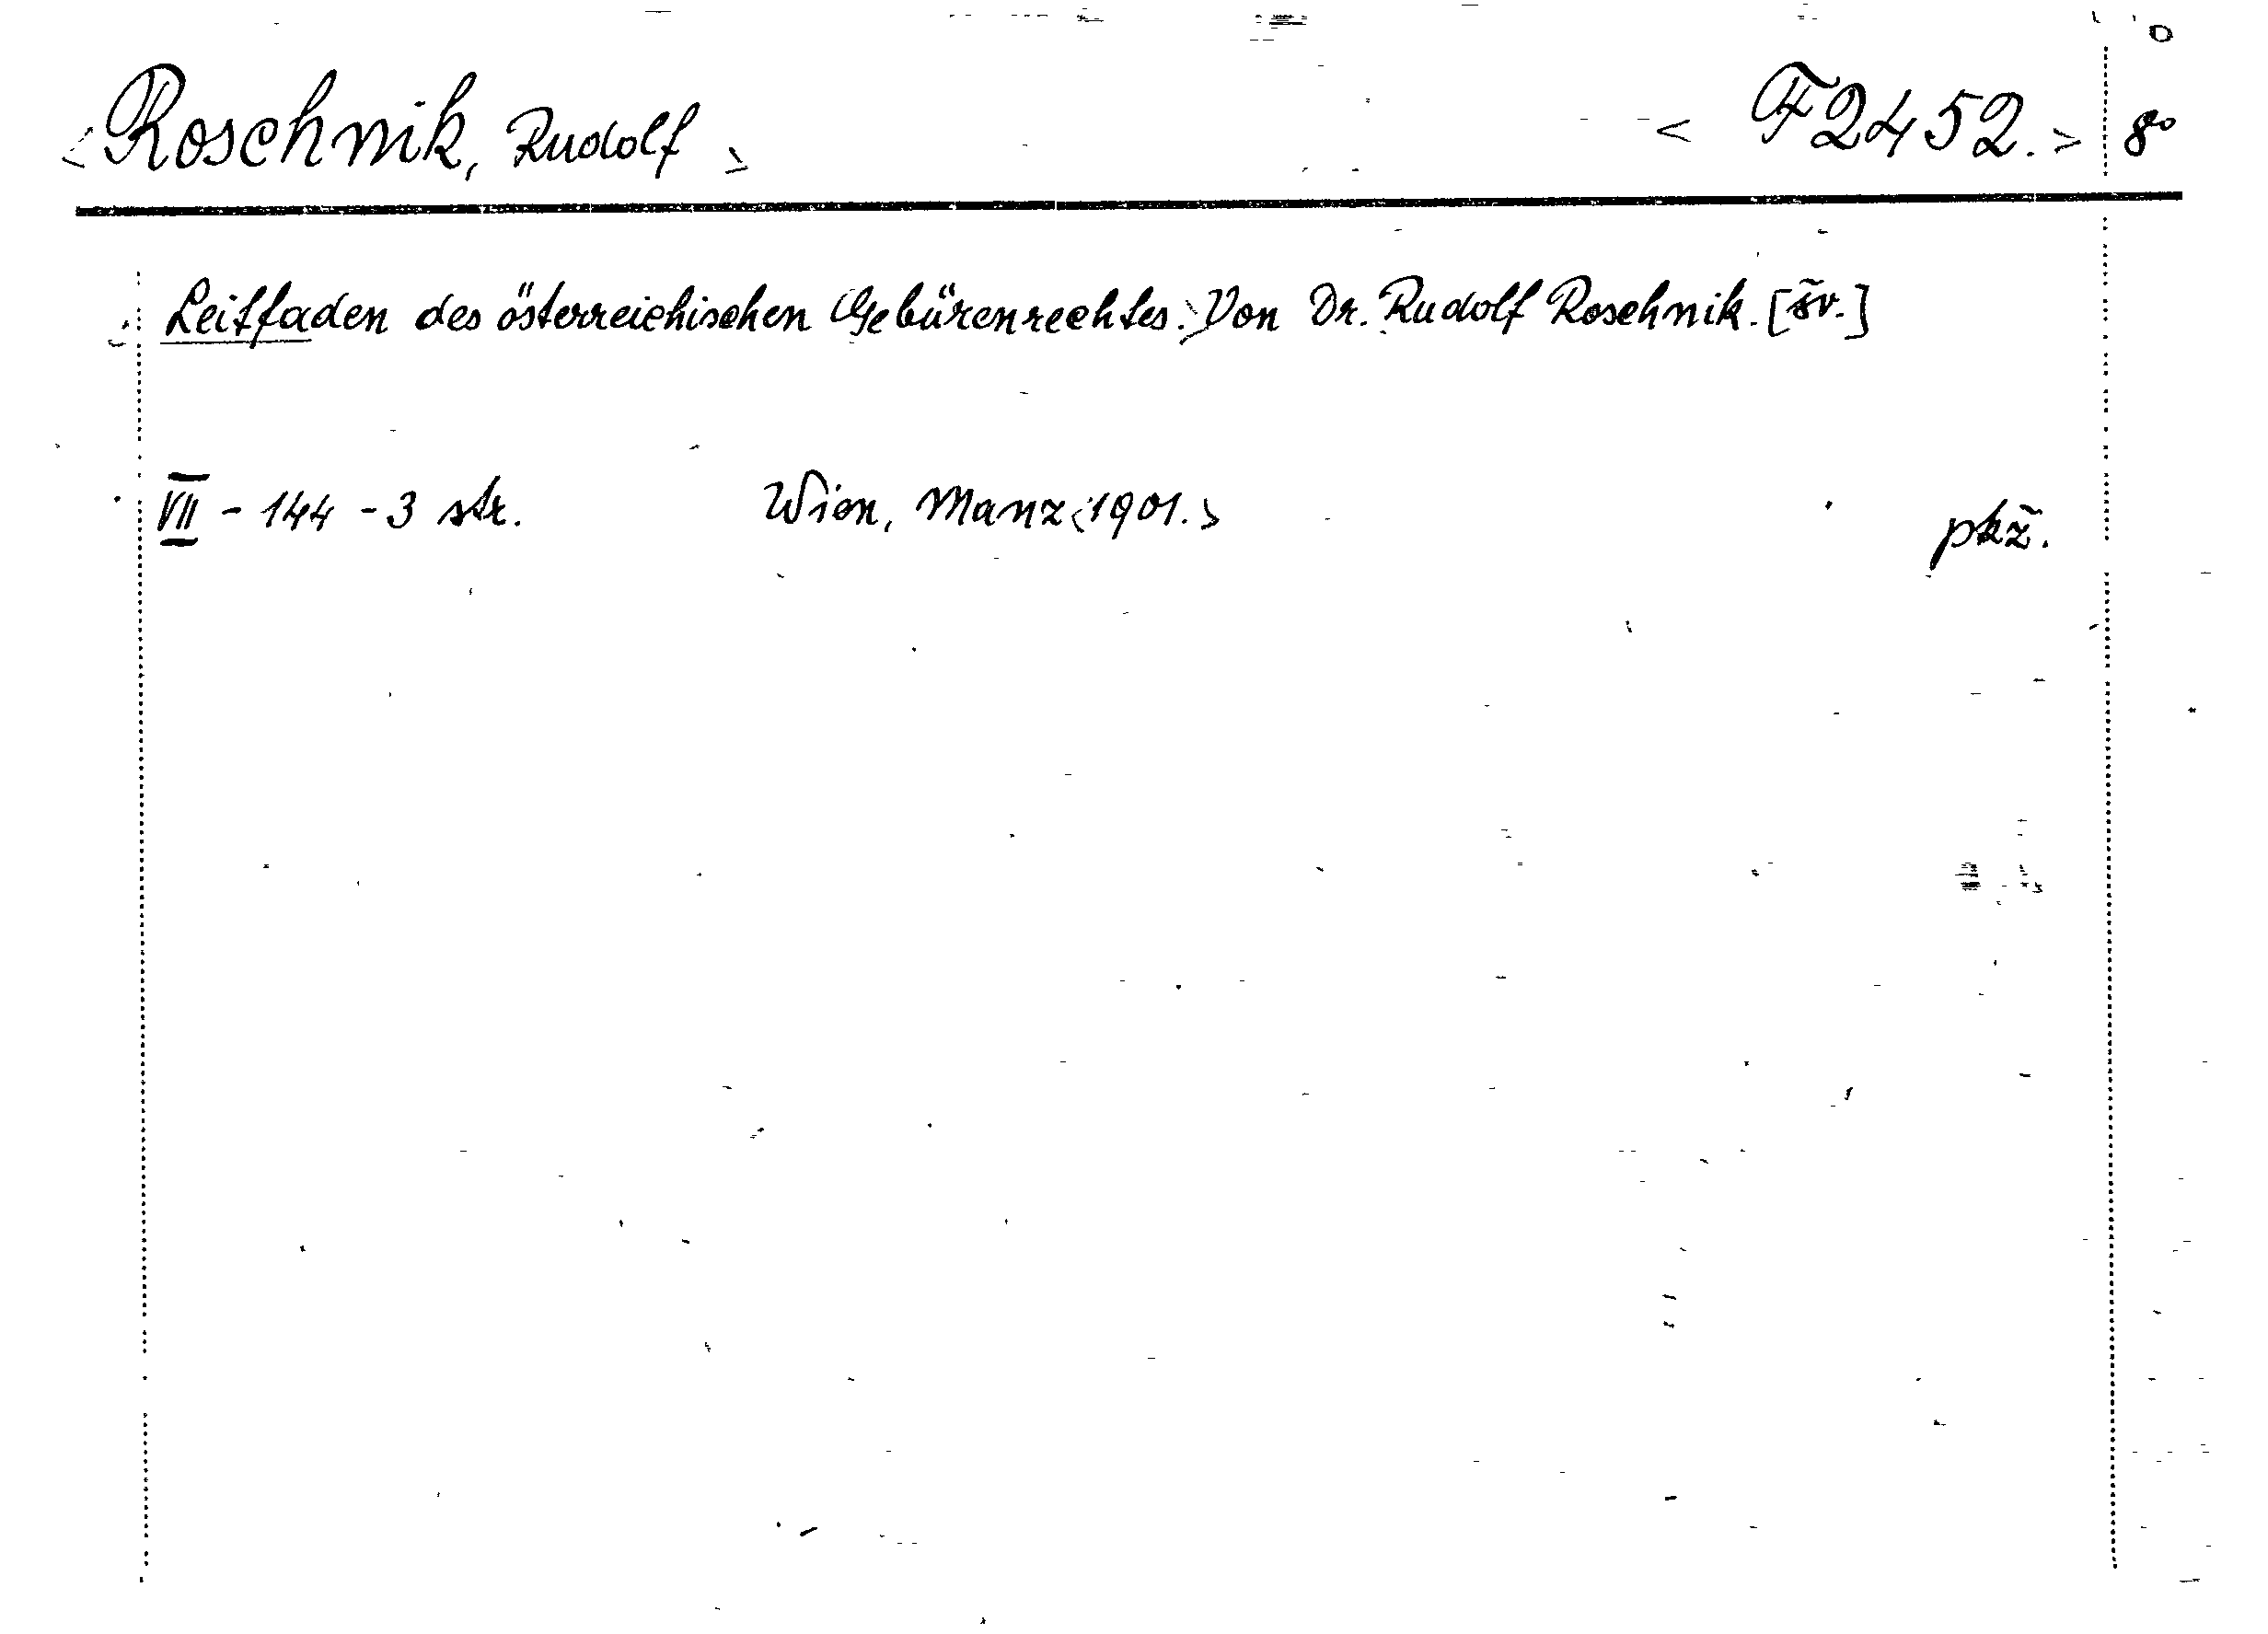 <Roschnik, Rudolf> <F2452.> 8°
<Leitfaden des österreichischen Gebürenrechtes.> Von Dr. Rudolf Roschnik. [šv.]
VII - 144 - 3 str. Wien, Manz <1901.> pkž.